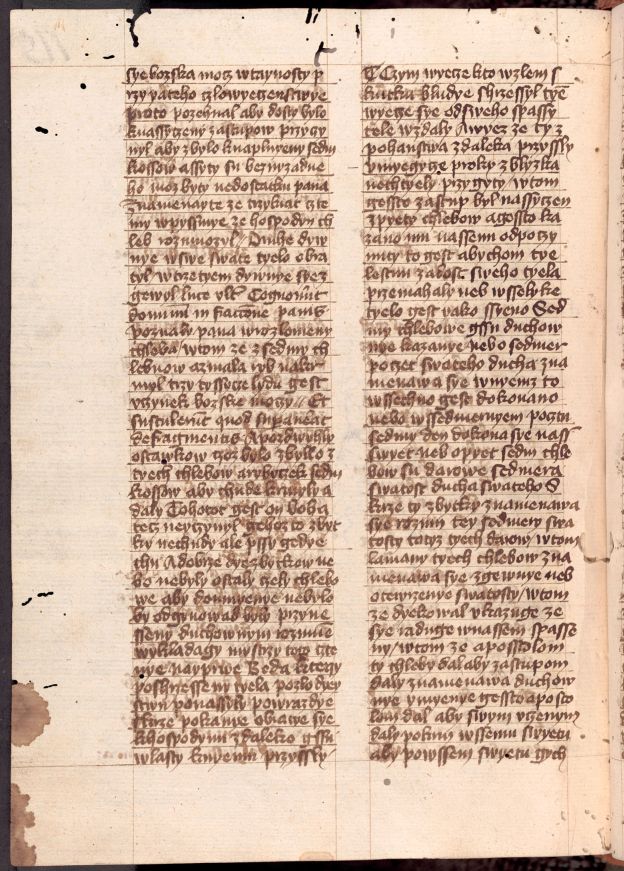 sye bozska moz wtaynosty p
rzy yateho czlowyeczenstwye
proto pozehnal aby dosty bylo
knassyczeny zastupow przyczy
nyl aby zbylo knaplnyeny sedm
kossow assyty su bez wzadne
ho moz byty nedostatku pana
Znamenayte ze czrtyrzie czte
my wpyssmye ze hospodyn ch
leb rozmnozyl // Druhe dyw
nye wswe swate tyelo obra
tyl wtrzetyem dywnye syez
gewyl luce vlt Cognouerunt
dominum in fraccione panis
poznaly pana wrozlomeny
chleba wtom ze zsedmy ch
lebuow amala ryb nakr
myl czty tyssycze lydu gest
vczynek bozske moczy // Et
sustulerunt quod supauerat
de fragmentis Apozdwyhly
ostawkow czoz bylo zbylo z
tyech chlebow arybyczek sedm
kossow aby chude krmyly a
daly Tohotoz gest on bohacz
tecz neyczynyl gehoz to zbyt
ky nechudy ale pssy gedye
chu Adobrze dye zbytkow ne
bo nebyly ostaly czely chlebo
we aby domnyenye nebylo
by odgynowad byly przyne
sseny duchownym rozumie
wykladagy mystrzy toto czte
nye Nayprwe Beda kterczy
poskrzessemy tyela pozlodyey
stwy ponassyly powrazdye
skrze pokanye obratye sye
khospodynu zdaleko gssu
wlasty knyemu przyssly
Czym wyecze kto wzlem s
kutku bludye shrzessyl tye
wyecze sye odsweho spassy
tele wzdaly Awyez ze ty z
pohanstwa zdaleka przyssly
vmyegycze proroky zblyzka
nechtyely przygyty wtom
gessto zastup byl nassyczen
zprwety chlebow agessto ka
zano mu nassemi odpoczy
nuty to gest abychom tye
lestnu zadost sweho tyela
przemahaly neb wsselyke
tyelo gest yako ssyeno Sed
my chlebowe gssu duchow
nye kazanye nebo sedmer
poczet swateho ducha zna
menawa sye wnyemz to
wssechno gest dokonano
nebo wssedmernyem pocztu
sedmy den dokona sye nass
swyet neb opyet sedm chle
bow su darowe sedmera
swatost ducha swateho S
krze ty zbytky znamenawa
sye rozum tey sedmery swa
tosty totyz tyech darow wtom
lamany tyech chlebow zna
menawa sye zgewnye neb
otewrzenye swatosty wtom
ze dyekowal vkazuge ze
sye raduge wnassem spasse
ny wtom ze aposstolom
ty chleby dal aby zastupom
daly znamenawa duchow
nye vmyenye gessto aposto
lom dal aby swym vczenym
daly pokrm wssemu swyetu
aby powssem swyetu gych